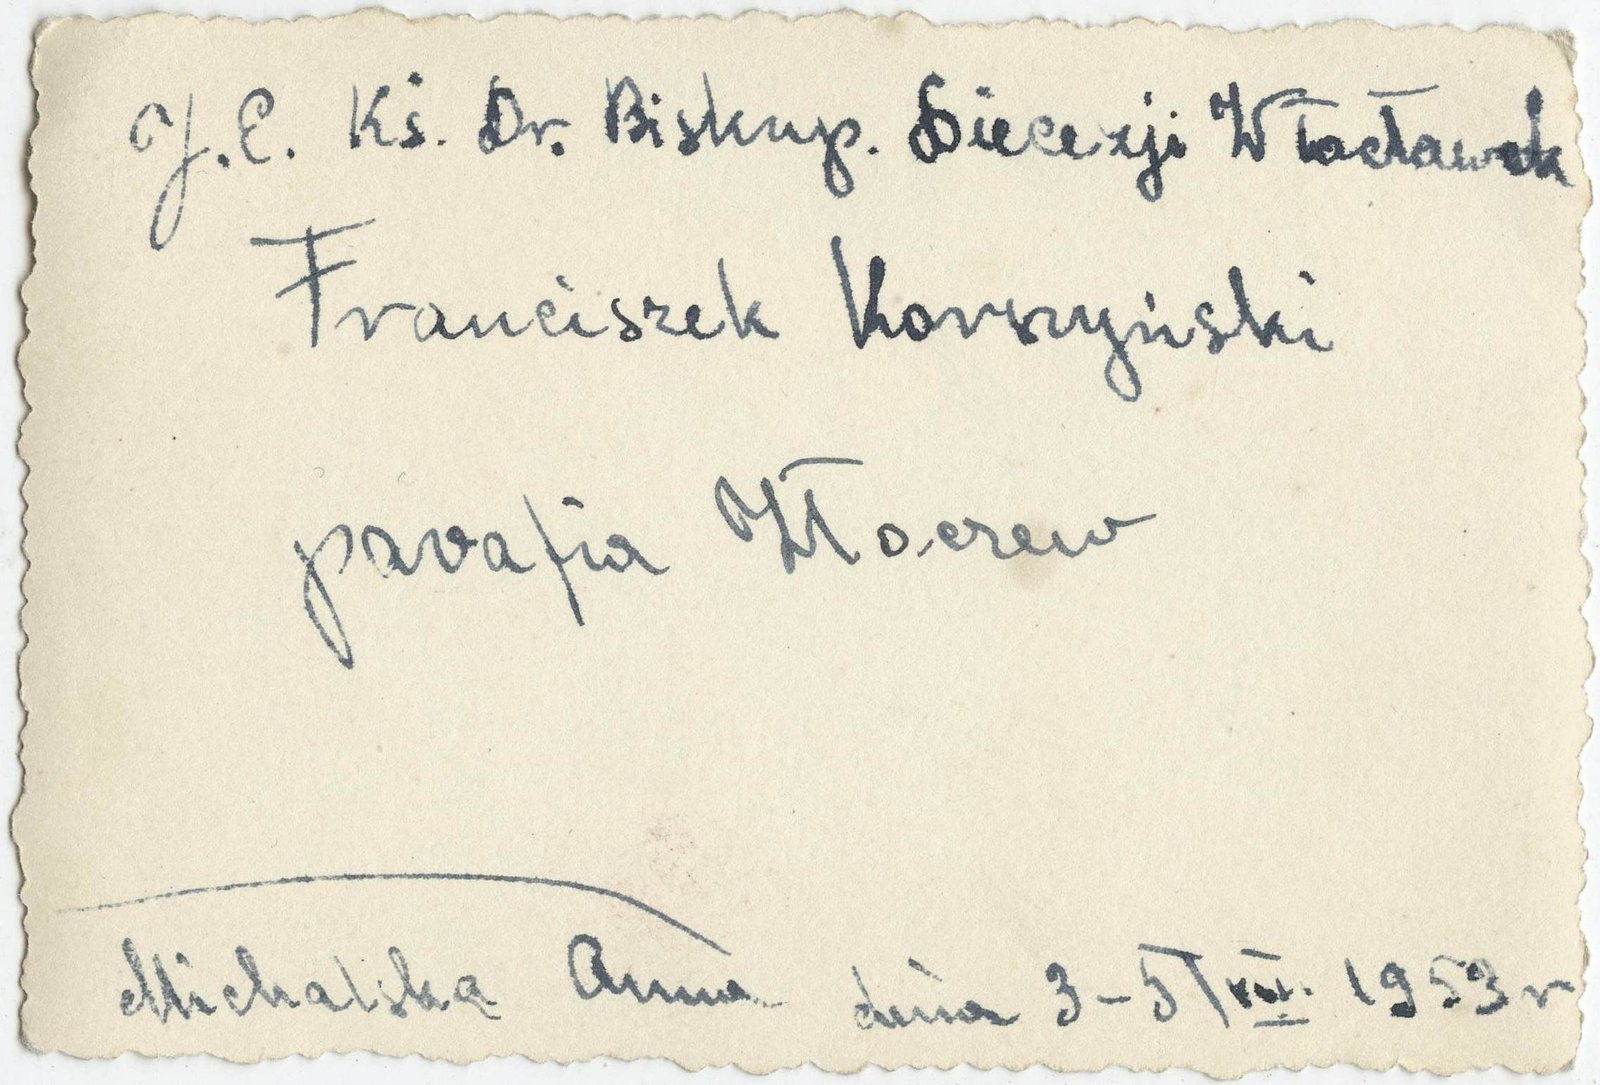 J.E. Ks. Dr. Biskup. Diecezji Włocławek
Franciszek Korszyński
parafia Złoczew
Michalska Anna dnia 3-5/XII. 1953 r